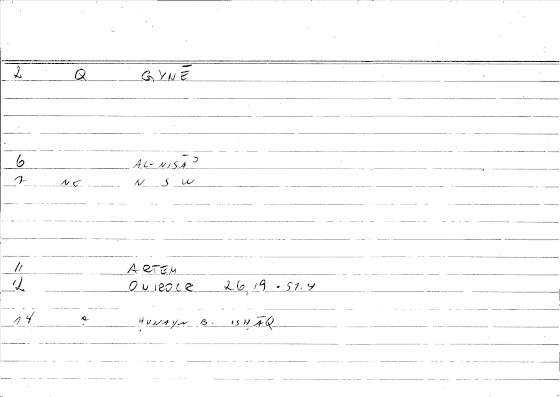 2 Q GYNĒ
6 AL-NISĀʾ
7 NE N S W
11 ARTEM
12 ONIROCR 26,19 • 51.4
14 ḤUNAYN B. ISḤĀQ